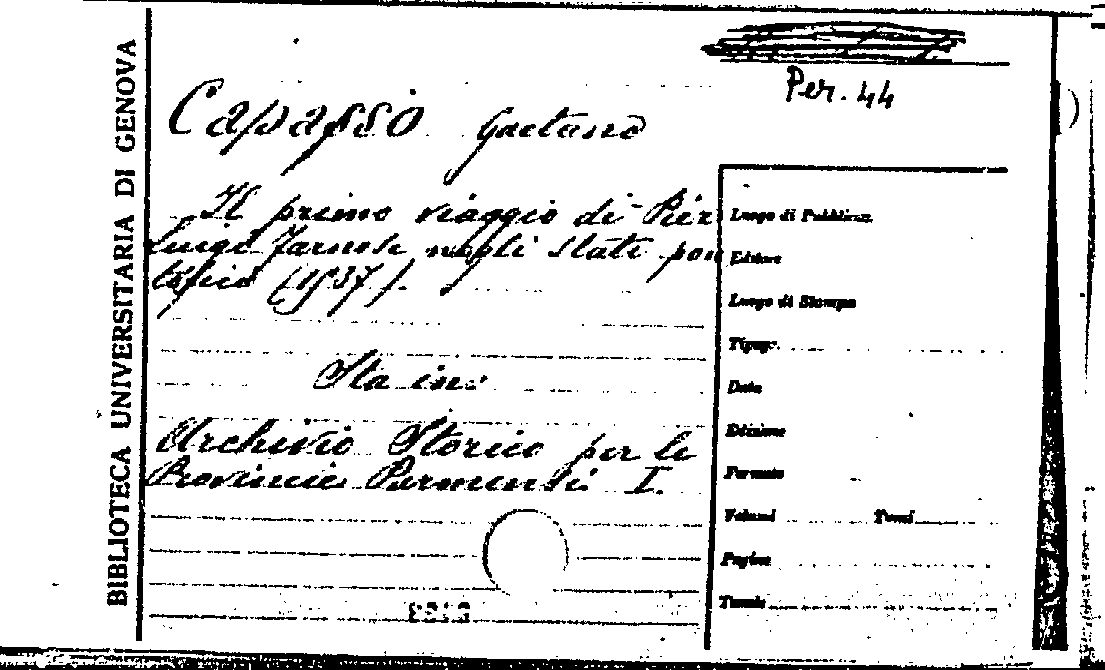 Per. 44
Capasso Gaetano
Il primo viaggio di Pier
Luigi Farnese negli Stati pon
tefici (1537).
Sta in:
Archivio Storico per le
Provincie Parmensi I.
BIBLIOTECA UNIVERSITARIA DI GENOVA
Luogo di Pubblicaz.
Editore
Luogo di Stampa
Tipogr.
Data
Edizione
Formato
Volumi Tomi
Pagine
Tavole